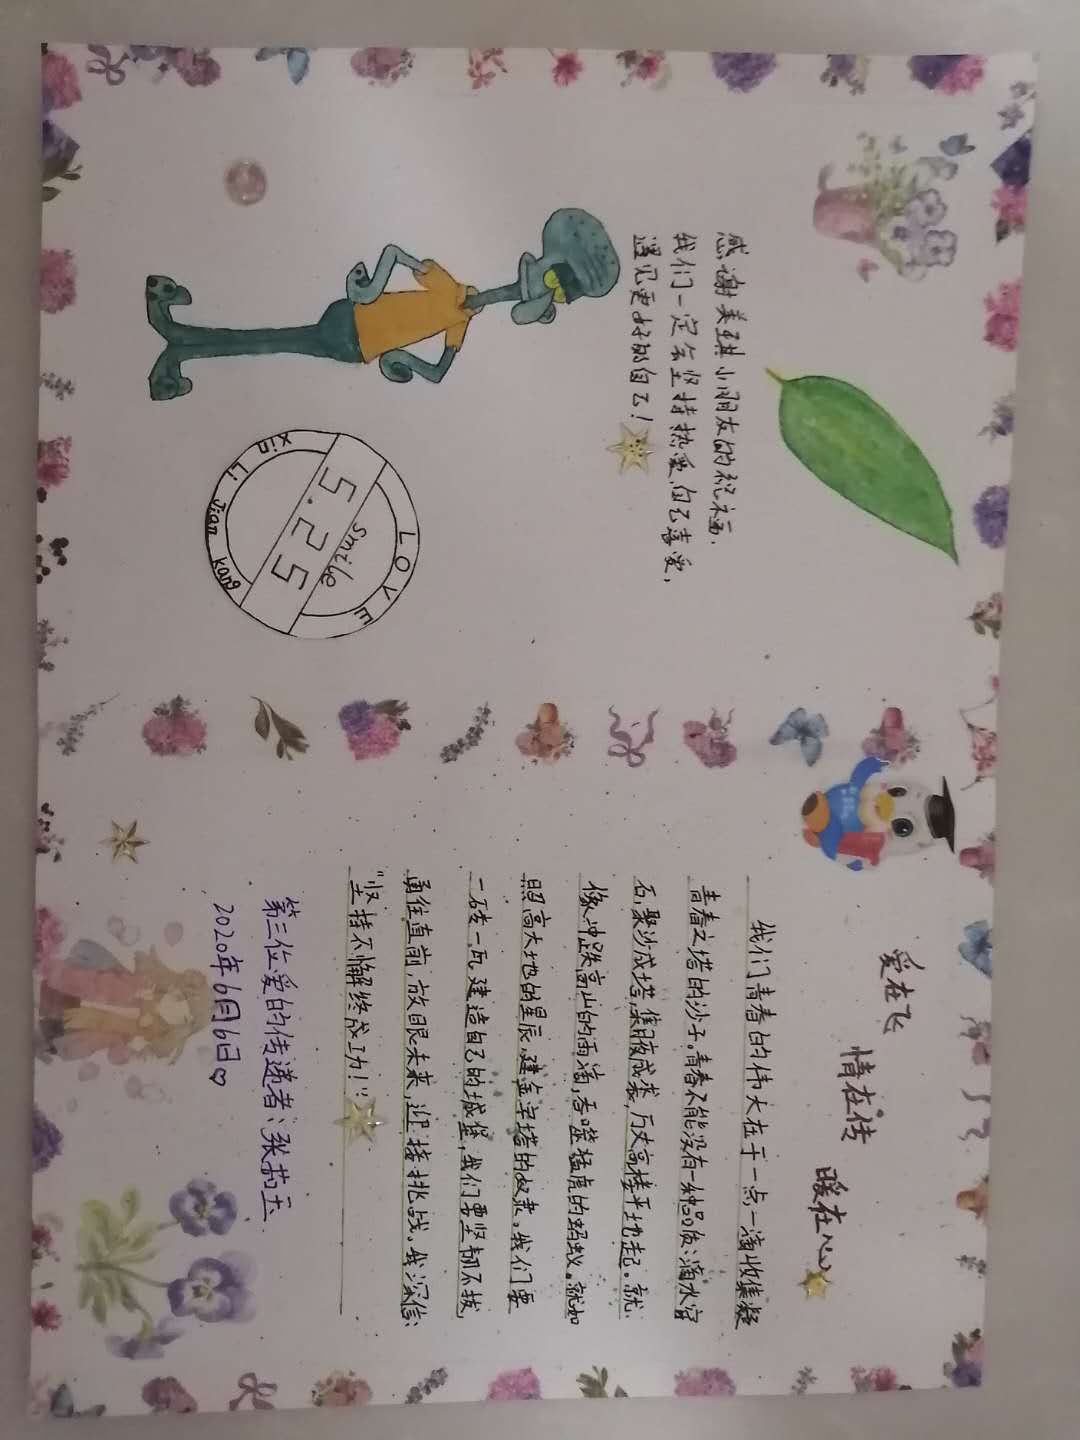 感谢美琪小朋友的祝福、
我们一定会坚持热爱自己喜爱，
遇见更好的自己！
LOVE
smile
5.25
xin Li Jian kang
爱在飞
情在传
暖在心
我们青春的伟大在于一点一滴收集凝
青春之塔的沙子。青春不能没有一种品质：滴水穿
石，聚沙成塔，集腋成裘，万丈高楼平地起。就
像冲跌高山的雨滴，吞噬猛虎的蚂蚁。就如
照亮大地的星辰，建金字塔的奴隶。我们要
一砖一瓦建造自己的城堡，我们要坚韧不拔，
勇往直前，放眼未来，迎接挑战。我深信：
"坚持不懈终成功！"
第三位爱的传递者：张茹玉
2020年6月6日♡